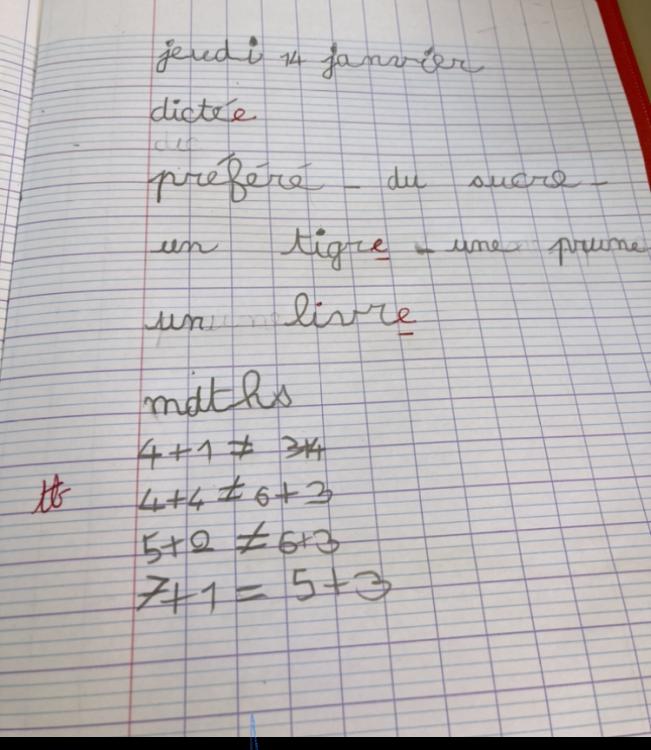 jeudi 14 janvier
dictée
préféré - du sucre -
un tigre - une prune
un livre
maths
4+1 ≠ 3+4
tb 4+4 ≠ 6+3
5+2 ≠ 6+3
7+1 = 5+3